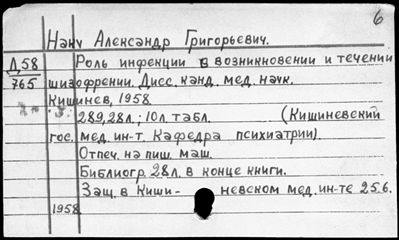 6
Нану Александр Григорьевич.
Д 58 Роль инфекции в возникновении и течении
765 шизофрении. Дисс. канд. мед. наук.
Кишинев, 1958.
289, 28л.; 10л. табл. (Кишиневский
гос. мед. ин-т. Кафедра психиатрии).
Отпеч. на пиш. маш.
Библиогр. 28л. в конце книги.
Защ. в Киши- невском мед. ин-те 25.6.
1958